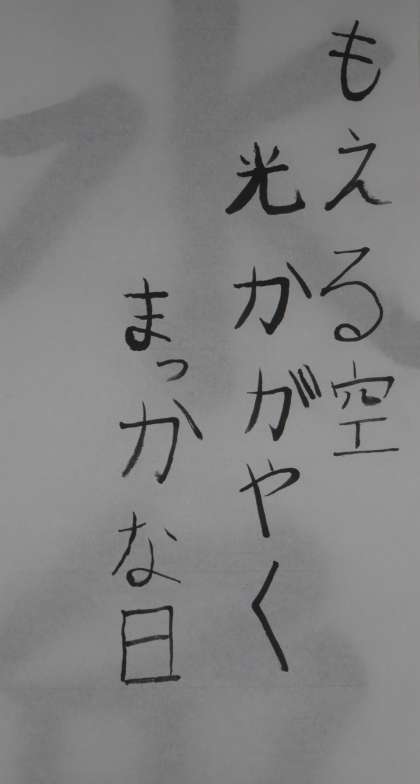 もえる空
光かがやく
まっかな日